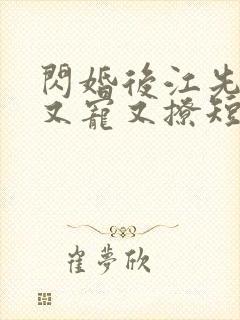 閃婚後江先
又寵又撩短
崔夢欣